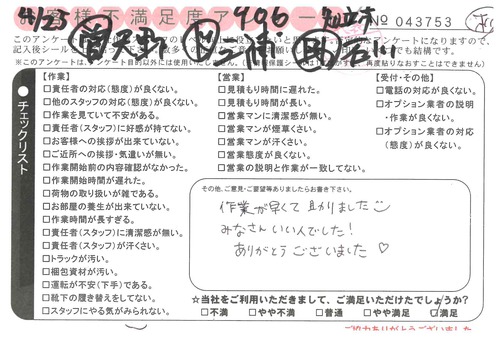 4/23 営 大野 三浦 助 石川
お客様不満足度ア
406 知立市
No 043753
このアンケートは
アンケートになりますので、
※このアンケートは、アンケート目的以外には使用いたしません。
再度貼りなおすことはできません)
チェックリスト
【作業】
□責任者の対応(態度)が良くない。
□他のスタッフの対応(態度)が良くない。
□作業を見ていて不安がある。
□責任者(スタッフ)に好感が持てない。
□お客様への挨拶が出来ていない。
□ご近所への挨拶・気遣いが無い。
□作業開始前の内容確認がなかった。
□作業開始時間が遅れた。
□荷物の取り扱いが雑である。
□お部屋の養生が出来ていない。
□作業時間が長すぎる。
□責任者(スタッフ)に清潔感が無い。
□責任者(スタッフ)が汗くさい。
□トラックが汚い。
□梱包資材が汚い。
□運転が不安(下手)である。
□靴下の履き替えをしてない。
□スタッフにやる気がみられない。
【営業】
□見積もり時間に遅れた。
□見積もり時間が長い。
□営業マンに清潔感が無い。
□営業マンが煙草くさい。
□営業マンが汗くさい。
□営業態度が良くない。
□営業の説明と作業が一致してない。
【受付・その他】
□電話の対応が良くない。
□オプション業者の説明
・作業が良くない。
□オプション業者の対応
(態度)が良くない。
その他、ご意見・ご要望等ありましたらお書き下さい。
作業が早くて助かりました
みなさんいい人でした!
ありがとうございました♡
☆当社をご利用いただきまして、ご満足いただけたでしょうか?
□不満 □やや不満 □普通 □やや満足 ☑満足
ご協力ありがとうございました